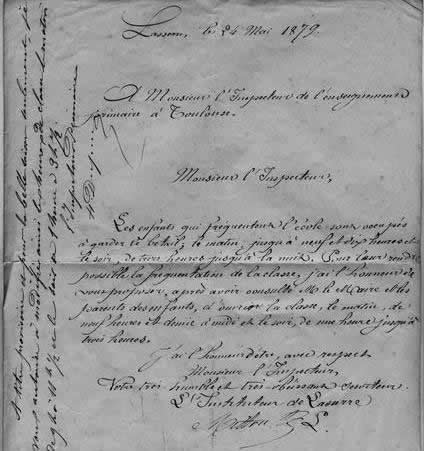 Lasserre, le 24 Mai 1879.
A Monsieur l'Inspecteur de l'enseignement
primaire à Toulouse.
Monsieur l'Inspecteur,
Les enfants qui fréquentent l'école sont occupés
à garder le bétail, le matin, jusqu'à neuf et dix heures et
le soir, de trois heures jusqu'à la nuit. Pour leur rendre
possible la fréquentation de la classe, j'ai l'honneur de
vous proposer, après avoir consulté M. le Maire et les
parents des enfants, d'ouvrir la classe, le matin, de
neuf heures et demie à midi et le soir, de une heure jusqu'à
trois heures.
J'ai l'honneur d'être, avec respect
Monsieur l'Inspecteur,
Votre très humble et très obéissant serviteur.
L'Instituteur de
A titre provisoire et pour la belle saison seulement, je
vous autorise à
l'Inspecteur Primaire